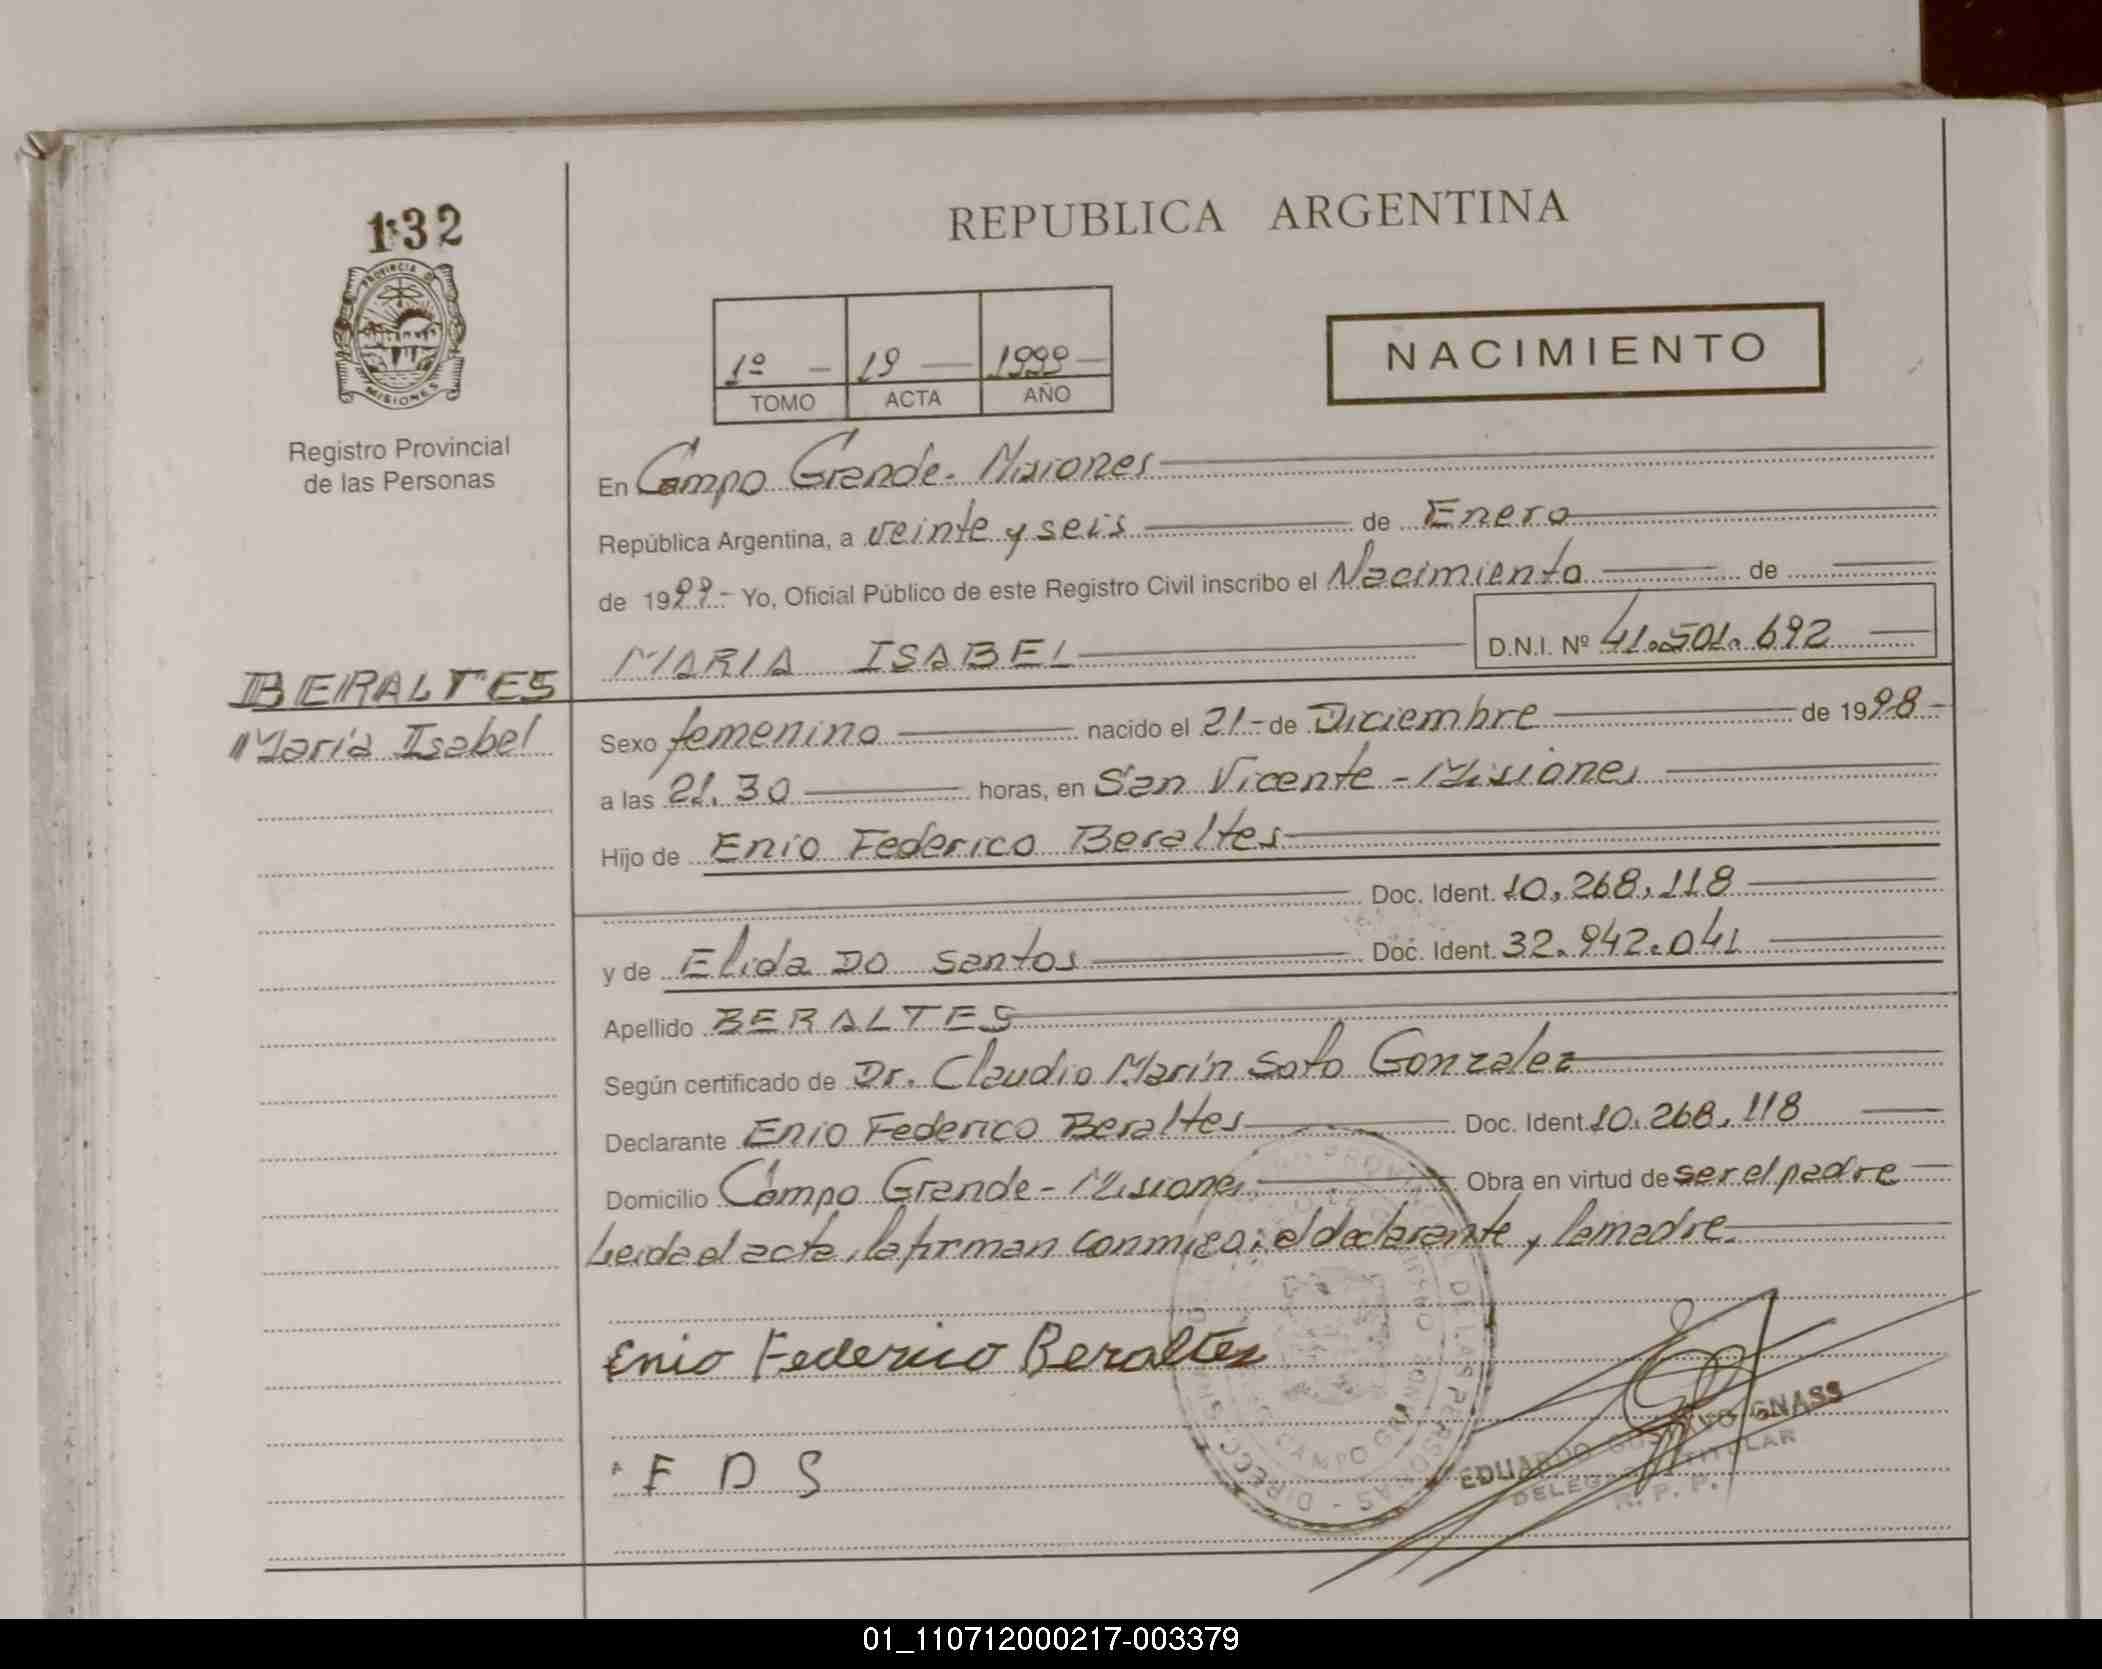 132
PROVINCIA DE
MISIONES
Registro Provincial
de las Personas
REPUBLICA ARGENTINA
1º - 19 - 1999 -
TOMO ACTA AÑO
NACIMIENTO
En Campo Grande - Misiones
República Argentina, a veinte y seis de Enero
de 1999.- Yo, Oficial Público de este Registro Civil inscribo el Nacimiento de
MARIA ISABEL D.N.I. Nº 41.501.692
BERALTES
Maria Isabel
Sexo femenino nacido el 21- de Diciembre de 1998-
a las 21.30 horas, en San Vicente - Misiones
Hijo de Enio Federico Beraltes
Doc. Ident. 10.268.118
y de Elida Do santos Doc. Ident. 32.942.041
Apellido BERALTES
Según certificado de Dr. Claudio Marín Soto Gonzalez
Declarante Enio Federico Beraltes Doc. Ident. 10.268.118
Domicilio Campo Grande - Misiones Obra en virtud de ser el padre
Leida el acta, la firman conmigo: el declarante y la madre.
Enio Federico Beraltes
E D S
DIRECC. DE LAS PERSONAS
CAMPO GRANDE
EDUARDO GUSTAVO GNASS
DELEGADO TITULAR
R. P. P.
01_110712000217-003379